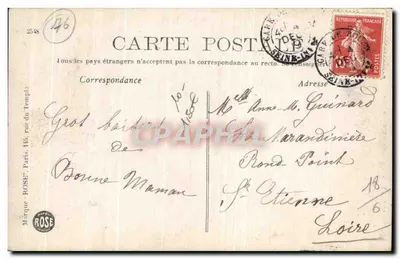 258
76
CARTE POSTALE
Tous les pays étrangers n'acceptent pas la correspondance au recto. Se renseigner
Correspondance
Adresse
GARE DE
DEC
SEINE-INF
REPUBLIQUE FRANÇAISE
POSTES
10
Gros baisers
de
Bonne Maman
Melle Anne-M. Guinard
La Marandinière
Rond Point
St Etienne
Loire
18
6
Marque "ROSE" Paris, 145, rue du Temple
ROSE
CPARAMA